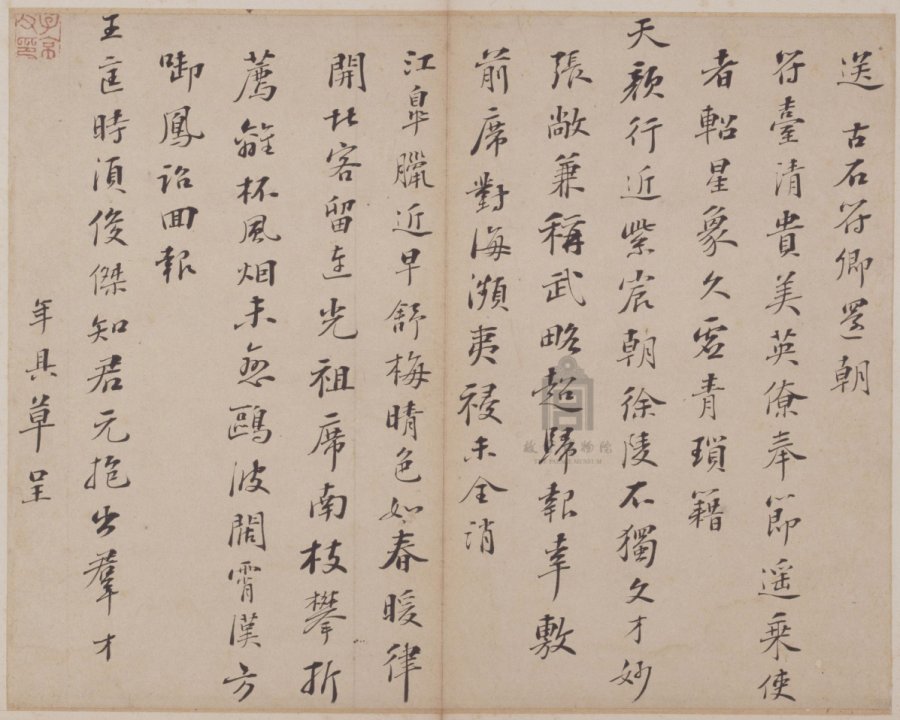 送 古石符卿還朝
符臺清貴美英僚奉節遥乗使
者軺星象久虚青瑣籍
天顔行近紫宸朝徐陵不獨文才妙
張敞兼稱武略超歸報幸敷
前席對海瀕夷祲未全消
江臯臘近早舒梅晴色如春暖律
開北客留連光祖席南枝攀折
薦離杯風烟未鷗波闊霄漢方
啣鳳詔囬報
王匡時須俊傑知君元抱出羣才
年具草呈
子京父印
故宫博物院
THE PALACE MUSEUM